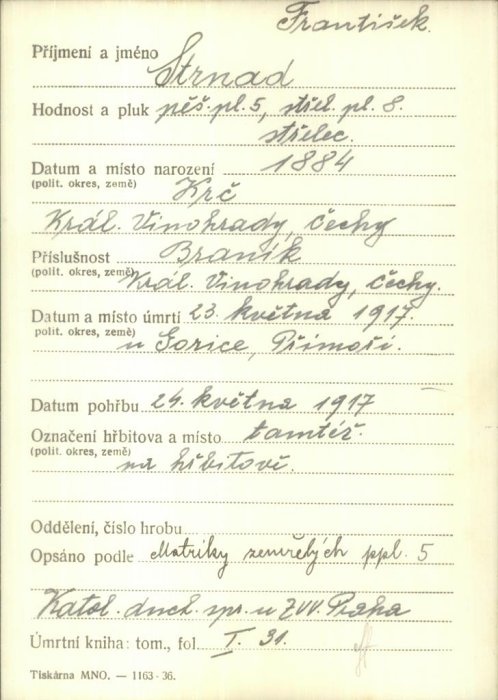 František.
Příjmení a jméno Strnad
Hodnost a pluk pěš. pl. 5, střel. pl. 8.
střelec.
Datum a místo narození 1884
(polit. okres, země) Krč
Král. Vinohrady, čechy
Příslušnost Braník
(polit. okres, země) Král. Vinohrady, čechy.
Datum a místo úmrtí 23. května 1917.
polit. okres, země) u Gorice, Přímoří.
Datum pohřbu 24. května 1917
Označení hřbitova a místo tamtéž.
(polit. okres, země) na hřbitově.
Oddělení, číslo hrobu
Opsáno podle Matriky zemřelých ppl. 5
Katol. duch. spr. u ZVV. Praha
Úmrtní kniha: tom., fol. I. 31.
Tiskárna MNO. — 1163-36.